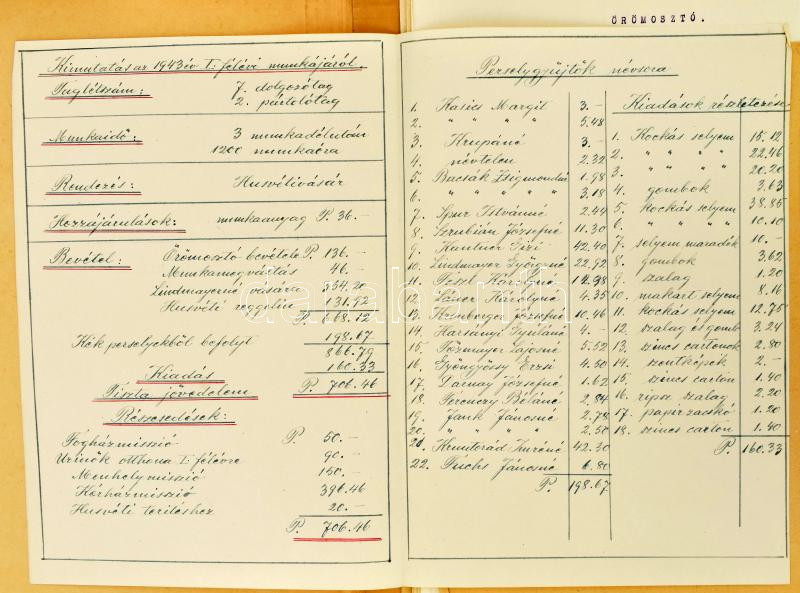 ÖRÖMOSZTÓ.
Kimutatás az 1943 év I. félévi munkájáról.
Taglétszám: 7. dolgozótag
2. pártolótag
Munkaidő: 3 munkadélután
1200 munkaóra
Rendezés: Husvétivásár
Hozzájárulások: munkaanyag P. 36.-
Bevétel: Örömosztó bevétele P. 136.-
Munkamegváltás 46.-
Lindmayerné vására 354.20
Husvéti reggelin 131.92
P. 668.12
Kék perselyekből befolyt 198.67
866.79
Kiadás 160.33
Tiszta jövedelem P. 706.46
Részesedések:
Fogházmisszió P. 50.-
Urinők otthona I. félévre 90.-
Menhelymisszió 150.-
Kórházmisszió 396.46
Husvéti terítéshez 20.-
P. 706.46
Perselygyűjtők névsora
1. Kasics Margit 3.-
2. " " " " 5.48
3. Krupáné 3.-
4. névtelen 2.32
5. Bacsák Zsigmondné 1.98
6. " " " " 3.18
7. Spur Istvánné 2.44
8. Szrubián Józsefné 11.30
9. Kantner Gizi 42.40
10. Lindmayer Györgyné 22.92
11. Károlyné 12.98
12. Károlyné 4.35
13. Józsefné 10.46
14. Harsányi Gyuláné 4.-
15. Tözmayer Lajosné 5.52
16. Gyöngyössy Erzsi 4.50
17. Darnay Józsefné 1.62
18. Ferenczy Béláné 2.84
19. Jank Jánosné 2.78
20. " " " 2.50
21. Imréné 42.30
22. Fuchs Jánosné 6.80
P. 198.67
Kiadások részletezése
1. Kockás selyem 15.12
2. " " " 22.46
3. " " " 20.20
4. gombok 3.63
5. kockás selyem 38.85
6. " " " 10.10
7. selyem maradék 10.-
8. gombok 3.62
9. szalag 1.20
10. makart selyem 8.16
11. kockás selyem 12.75
12. szalag és gomb 3.24
13. szines cartonok 2.80
14. szentképek 2.-
15. szines carton 1.40
16. ripsz szalag 2.20
17. papírzacskó 1.20
18. szines carton 1.40
P. 160.33
darabanth